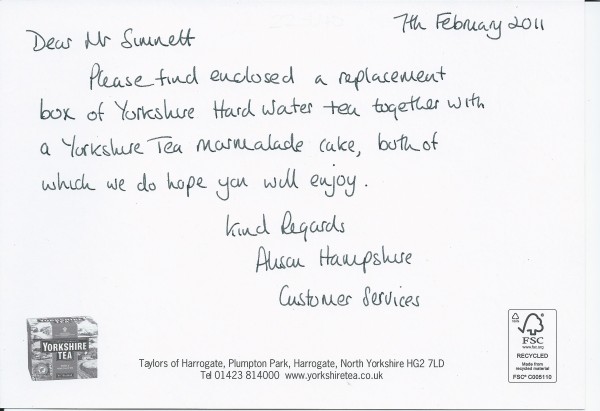 7th February 2011
Dear Mr Sinnett
Please find enclosed a replacement
box of Yorkshire Hard Water tea together with
a Yorkshire Tea marmalade cake, both of
which we do hope you will enjoy.
Kind Regards
Alison Hampshire
Customer Services
YORKSHIRE
TEA
Taylors of Harrogate, Plumpton Park, Harrogate, North Yorkshire HG2 7LD
Tel 01423 814000 www.yorkshiretea.co.uk
FSC
www.fsc.org
RECYCLED
Made from
recycled material
FSC® C005110